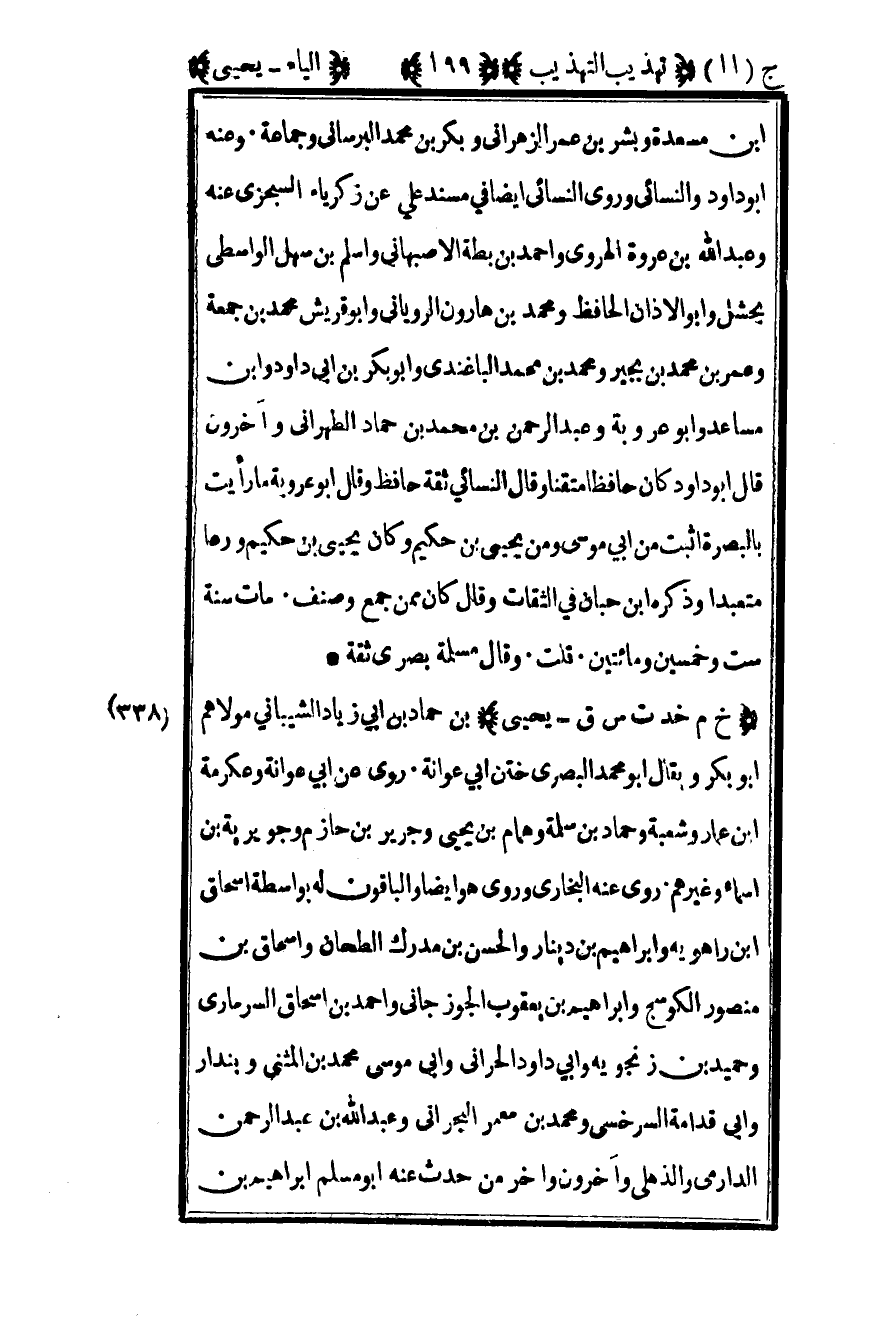 ج (١١) ﴿ تهذيب التهذيب ﴾ ﴿ ١٩٩ ﴾ ﴿ الياء - يحيى ﴾
ابن مسعدة وبشر بن عمر الزهرانى وبكر بن محمد البرسانى وجماعة · وعنه
ابو داود والنسائى وروى النسائى ايضا في مسند علي عن زكرياء السجزى عنه
وعبد الله بن عروة الهروى واحمد بن بطة الاصبهاني واسلم بن سهل الواسطى
بحشل وابو الاذان الحافظ ومحمد بن هارون الرويانى وابو قريش محمد بن جمعة
وعمر بن محمد بن بجير ومحمد بن محمد الباغندى وابو بكر بن ابي داود وابن
صاعد وابو عروبة وعبد الرحمن بن محمد بن حماد الطهرانى وآخرون
قال ابو داود كان حافظا متقنا وقال النسائي ثقة حافظ وقال ابو عروبة ما رأيت
بالبصرة اثبت من ابي موسى ومن يحيى بن حكيم وكان يحيى بن حكيم ورعا
متعبدا وذكره ابن حبان في الثقات وقال كان ممن جمع وصنف · مات سنة
ست وخمسين ومائتين · قلت · وقال مسلمة بصرى ثقة •
﴿ خ م خد ت س ق - يحيى ﴾ بن حماد بن ابي زياد الشيباني مولاهم (٣٣٨)
ابو بكر ويقال ابو محمد البصرى ختن ابي عوانة · روى عن ابي عوانة وعكرمة
ابن عمار وشعبة وحماد بن سلمة وهمام بن يحيى وجرير بن حازم وجويرية بن
اسماء وغيرهم · روى عنه البخارى وروى هو ايضا والباقون له بواسطة اسحاق
ابن راهويه وابراهيم بن دينار والحسن بن مدرك الطحان واسحاق بن
منصور الكوسج وابراهيم بن يعقوب الجوزجانى واحمد بن اسحاق السرمارى
وحميد بن زنجويه وابي داود الحرانى وابى موسى محمد بن المثنى وبندار
وابي قدامة السرخسى ومحمد بن معمر البحرانى وعبد الله بن عبد الرحمن
الدارمى والذهلى وآخرون واخر من حدث عنه ابو مسلم ابراهيم بن